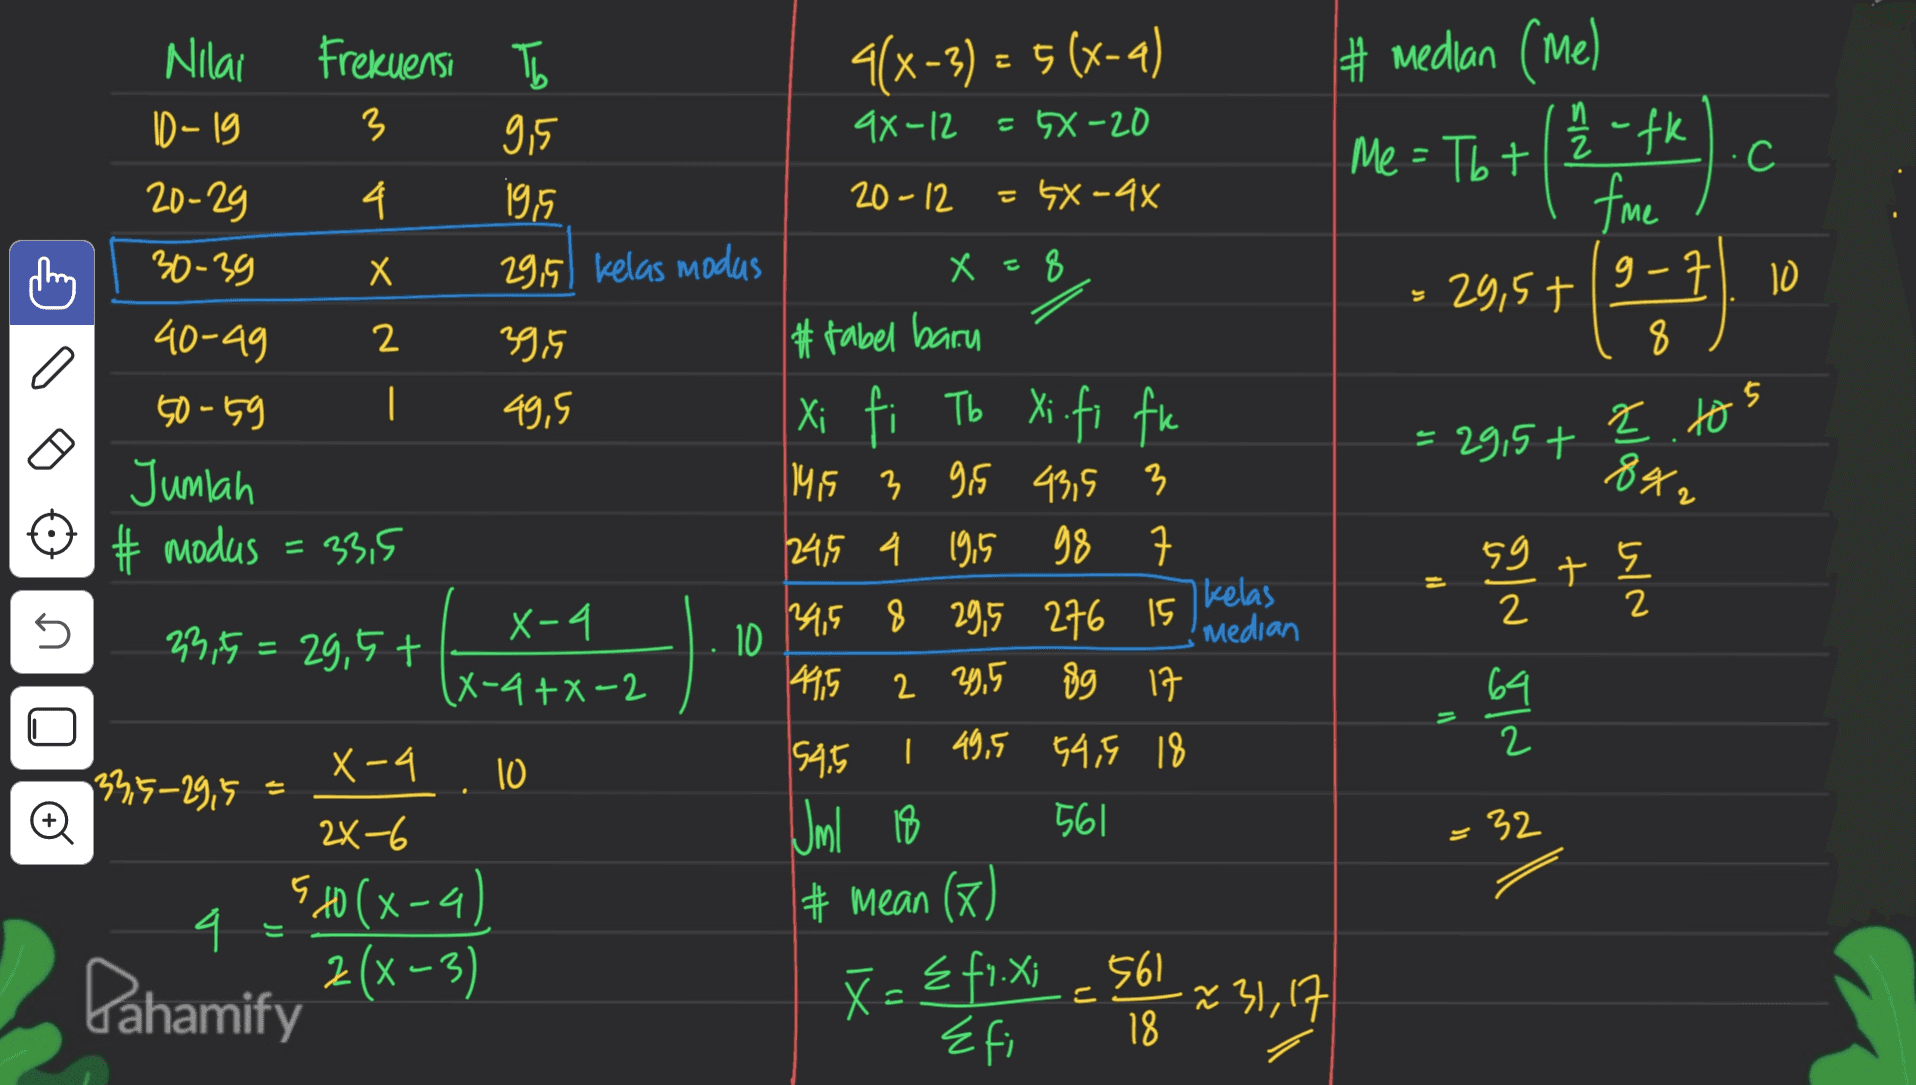 Nilai Frekuensi Tb
10-19 3 9,5
20-29 4 19,5
30-39 x 29,5 kelas modus
40-49 2 39,5
50-59 1 49,5
Jumlah
# modus = 33,5
33,5 = 29,5 + ( x-4 / x-4+x-2 ) . 10
33,5-29,5 = x-4 / 2x-6 . 10
4 = 5 10(x-4) / 2(x-3)
Pahamify
4(x-3) = 5(x-4)
4x-12 = 5x-20
20-12 = 5x-4x
x = 8
# tabel baru
xi fi Tb xi.fi fk
14,5 3 9,5 43,5 3
24,5 4 19,5 98 7
34,5 8 29,5 276 15 kelas median
44,5 2 39,5 89 17
54,5 1 49,5 54,5 18
Jml 18 561
# mean (x̄)
x̄ = Σ fi.xi / Σ fi = 561 / 18 ≈ 31,17
# median (Me)
Me = Tb + ( n/2 - fk / fme ) . c
= 29,5 + ( 9-7 / 8 ) . 10
= 29,5 + 2 / 8 4 2 . 10 5
= 59/2 + 5/2
= 64/2
= 32